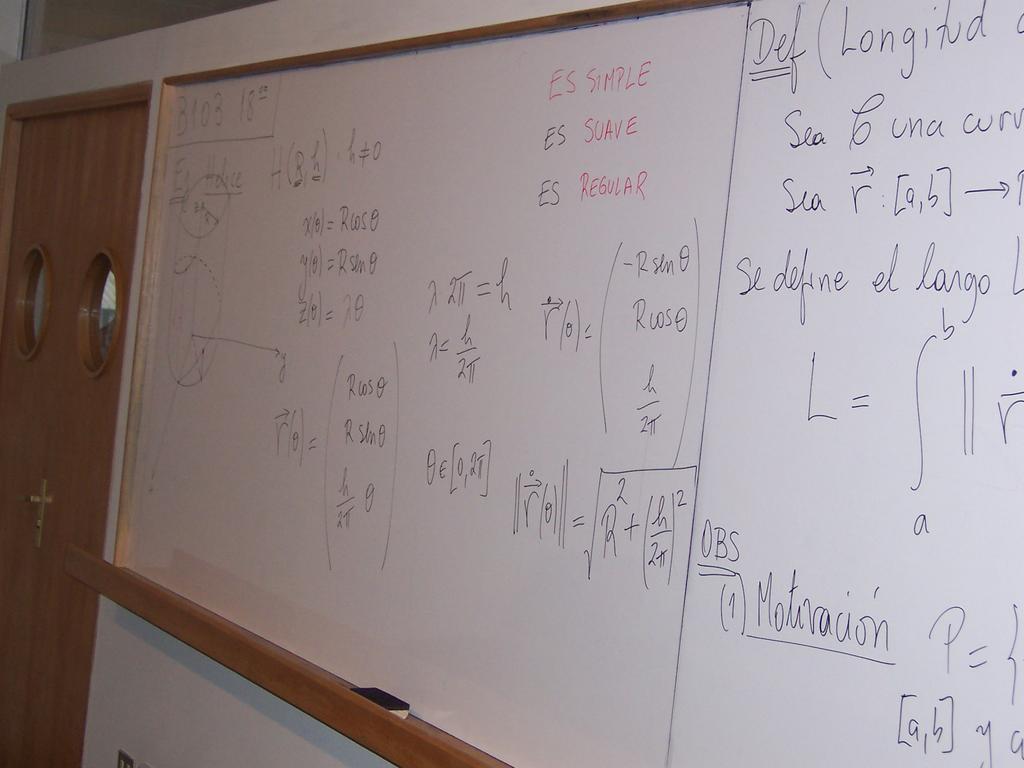 B103 18
Ej Hélice
H(R,h) · h≠0
x(θ) = R cos θ
y(θ) = R sen θ
z(θ) = λθ
y
r⃗(θ) = ( R cos θ
R sen θ
h/2π θ )
λ 2π = h
λ = h/2π
θ ∈ [0,2π]
ES SIMPLE
ES SUAVE
ES REGULAR
ṙ⃗(θ) = ( -R sen θ
R cos θ
h/2π )
||ṙ⃗(θ)|| = √(R² + (h/2π)²)
Def (Longitud
Sea C una curv
Sea r⃗ : [a,b] →
Se define el largo L
L = ∫ₐᵇ || ṙ
OBS
(1) Motivación
P = {
[a,b] y